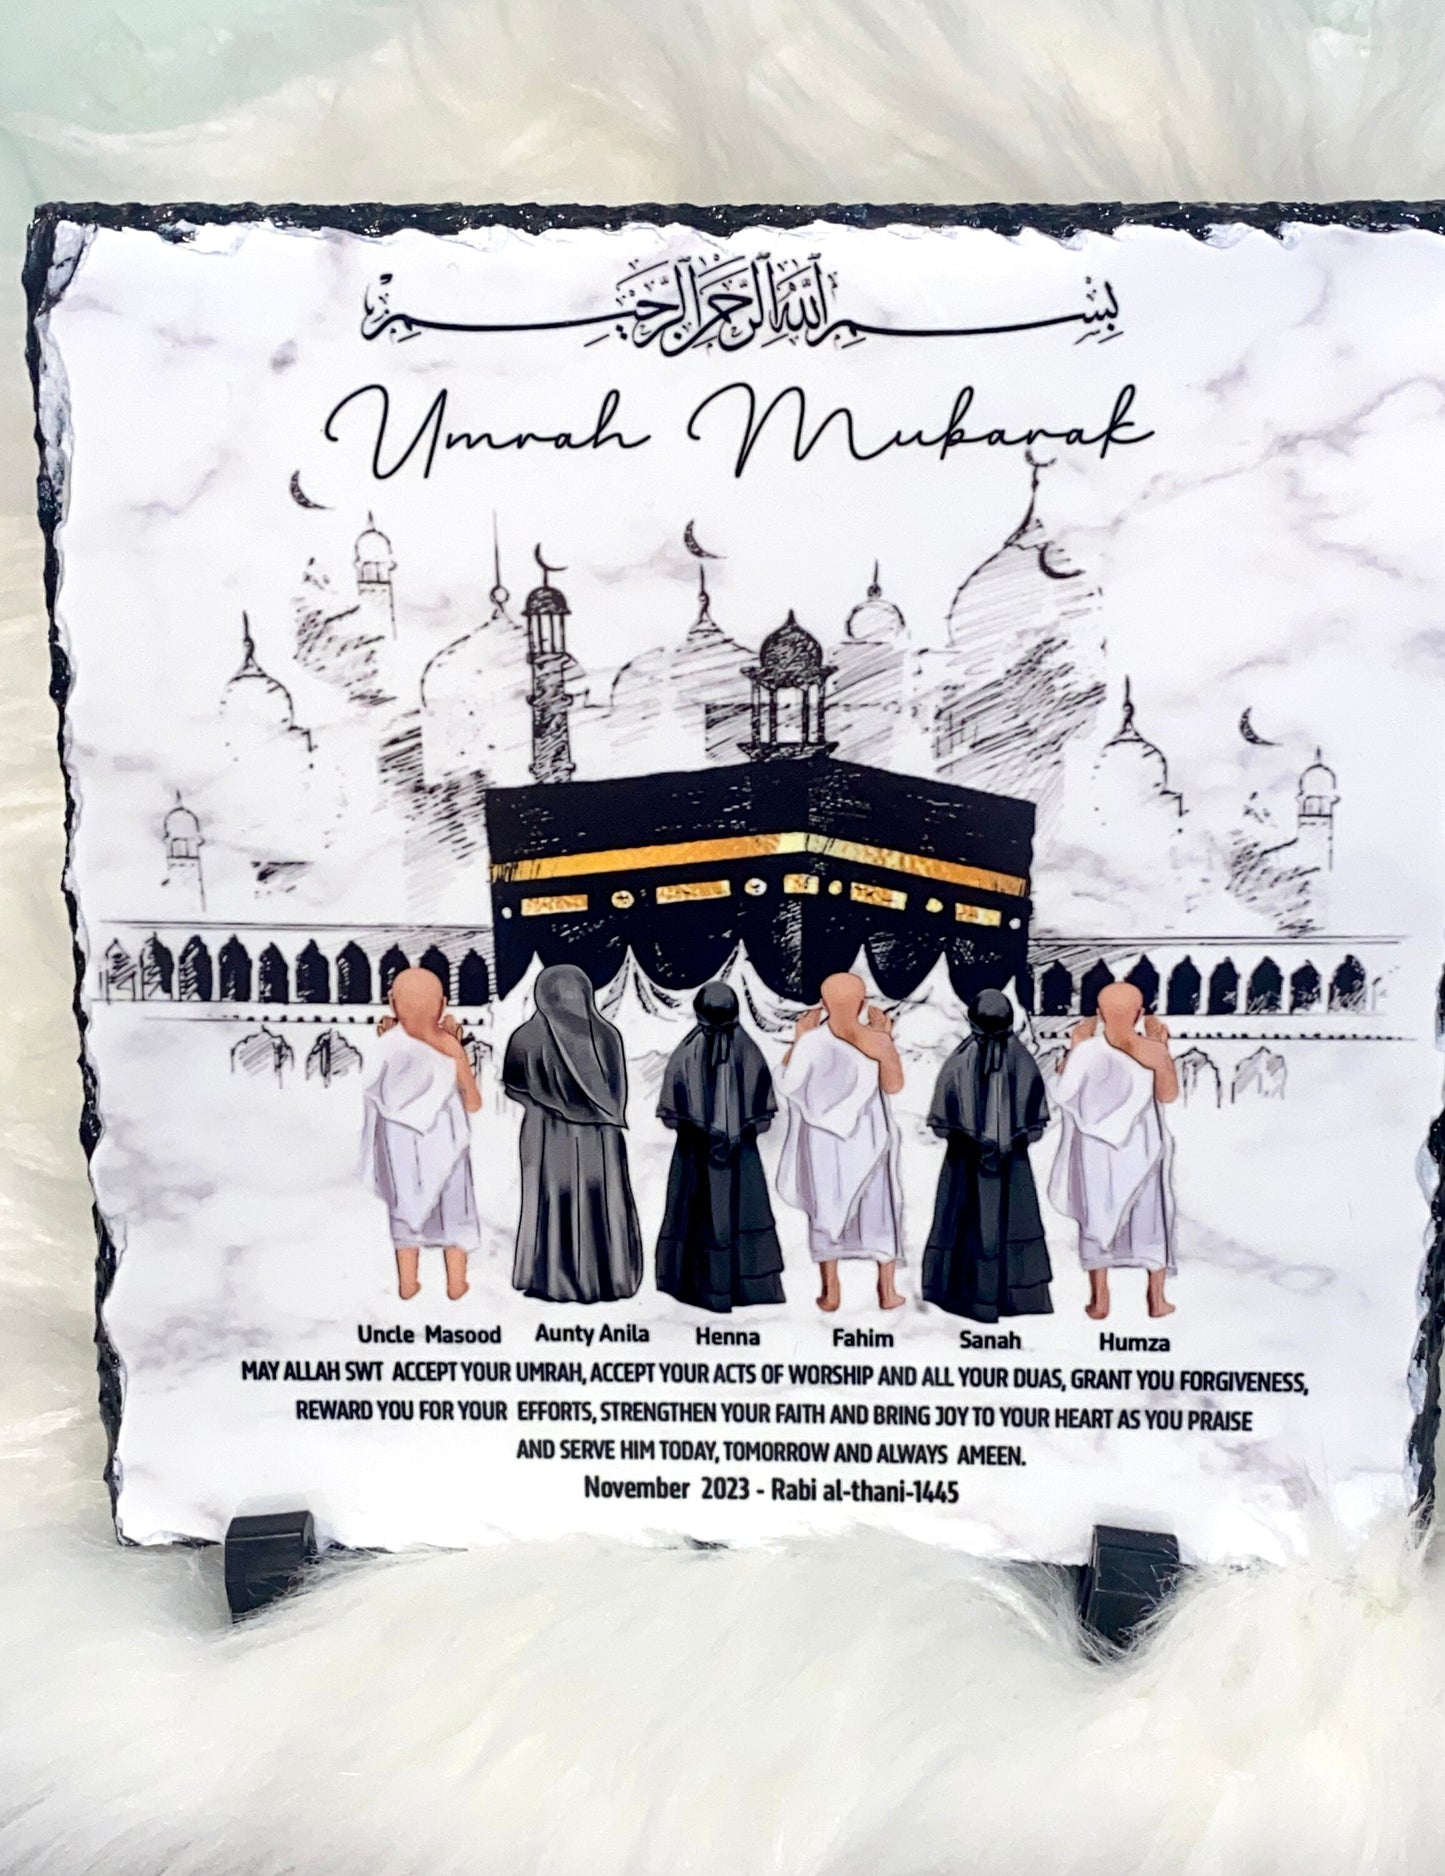 بِسْمِ اللَّهِ الرَّحْمَٰنِ الرَّحِيمِ
Umrah Mubarak
Uncle Masood Aunty Anila Henna Fahim Sanah Humza
MAY ALLAH SWT ACCEPT YOUR UMRAH, ACCEPT YOUR ACTS OF WORSHIP AND ALL YOUR DUAS, GRANT YOU FORGIVENESS,
REWARD YOU FOR YOUR EFFORTS, STRENGTHEN YOUR FAITH AND BRING JOY TO YOUR HEART AS YOU PRAISE
AND SERVE HIM TODAY, TOMORROW AND ALWAYS AMEEN.
November 2023 - Rabi al-thani-1445